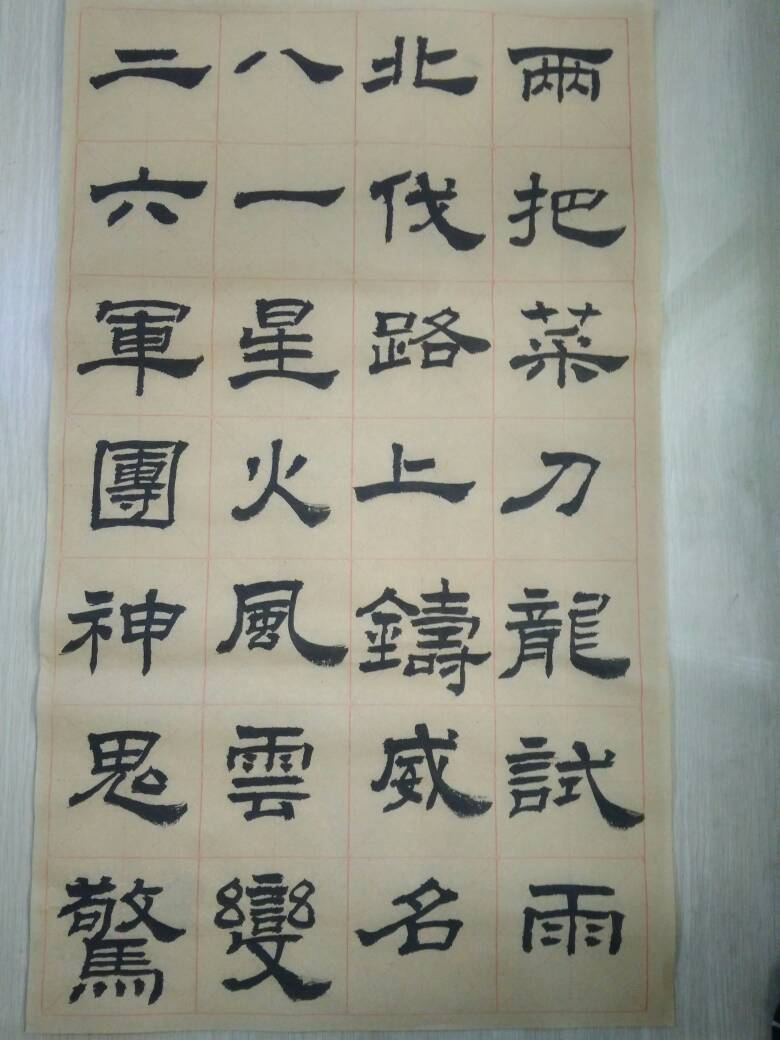 兩把菜刀龍試雨
北伐路上鑄威名
八一星火風雲變
二六軍團神鬼驚